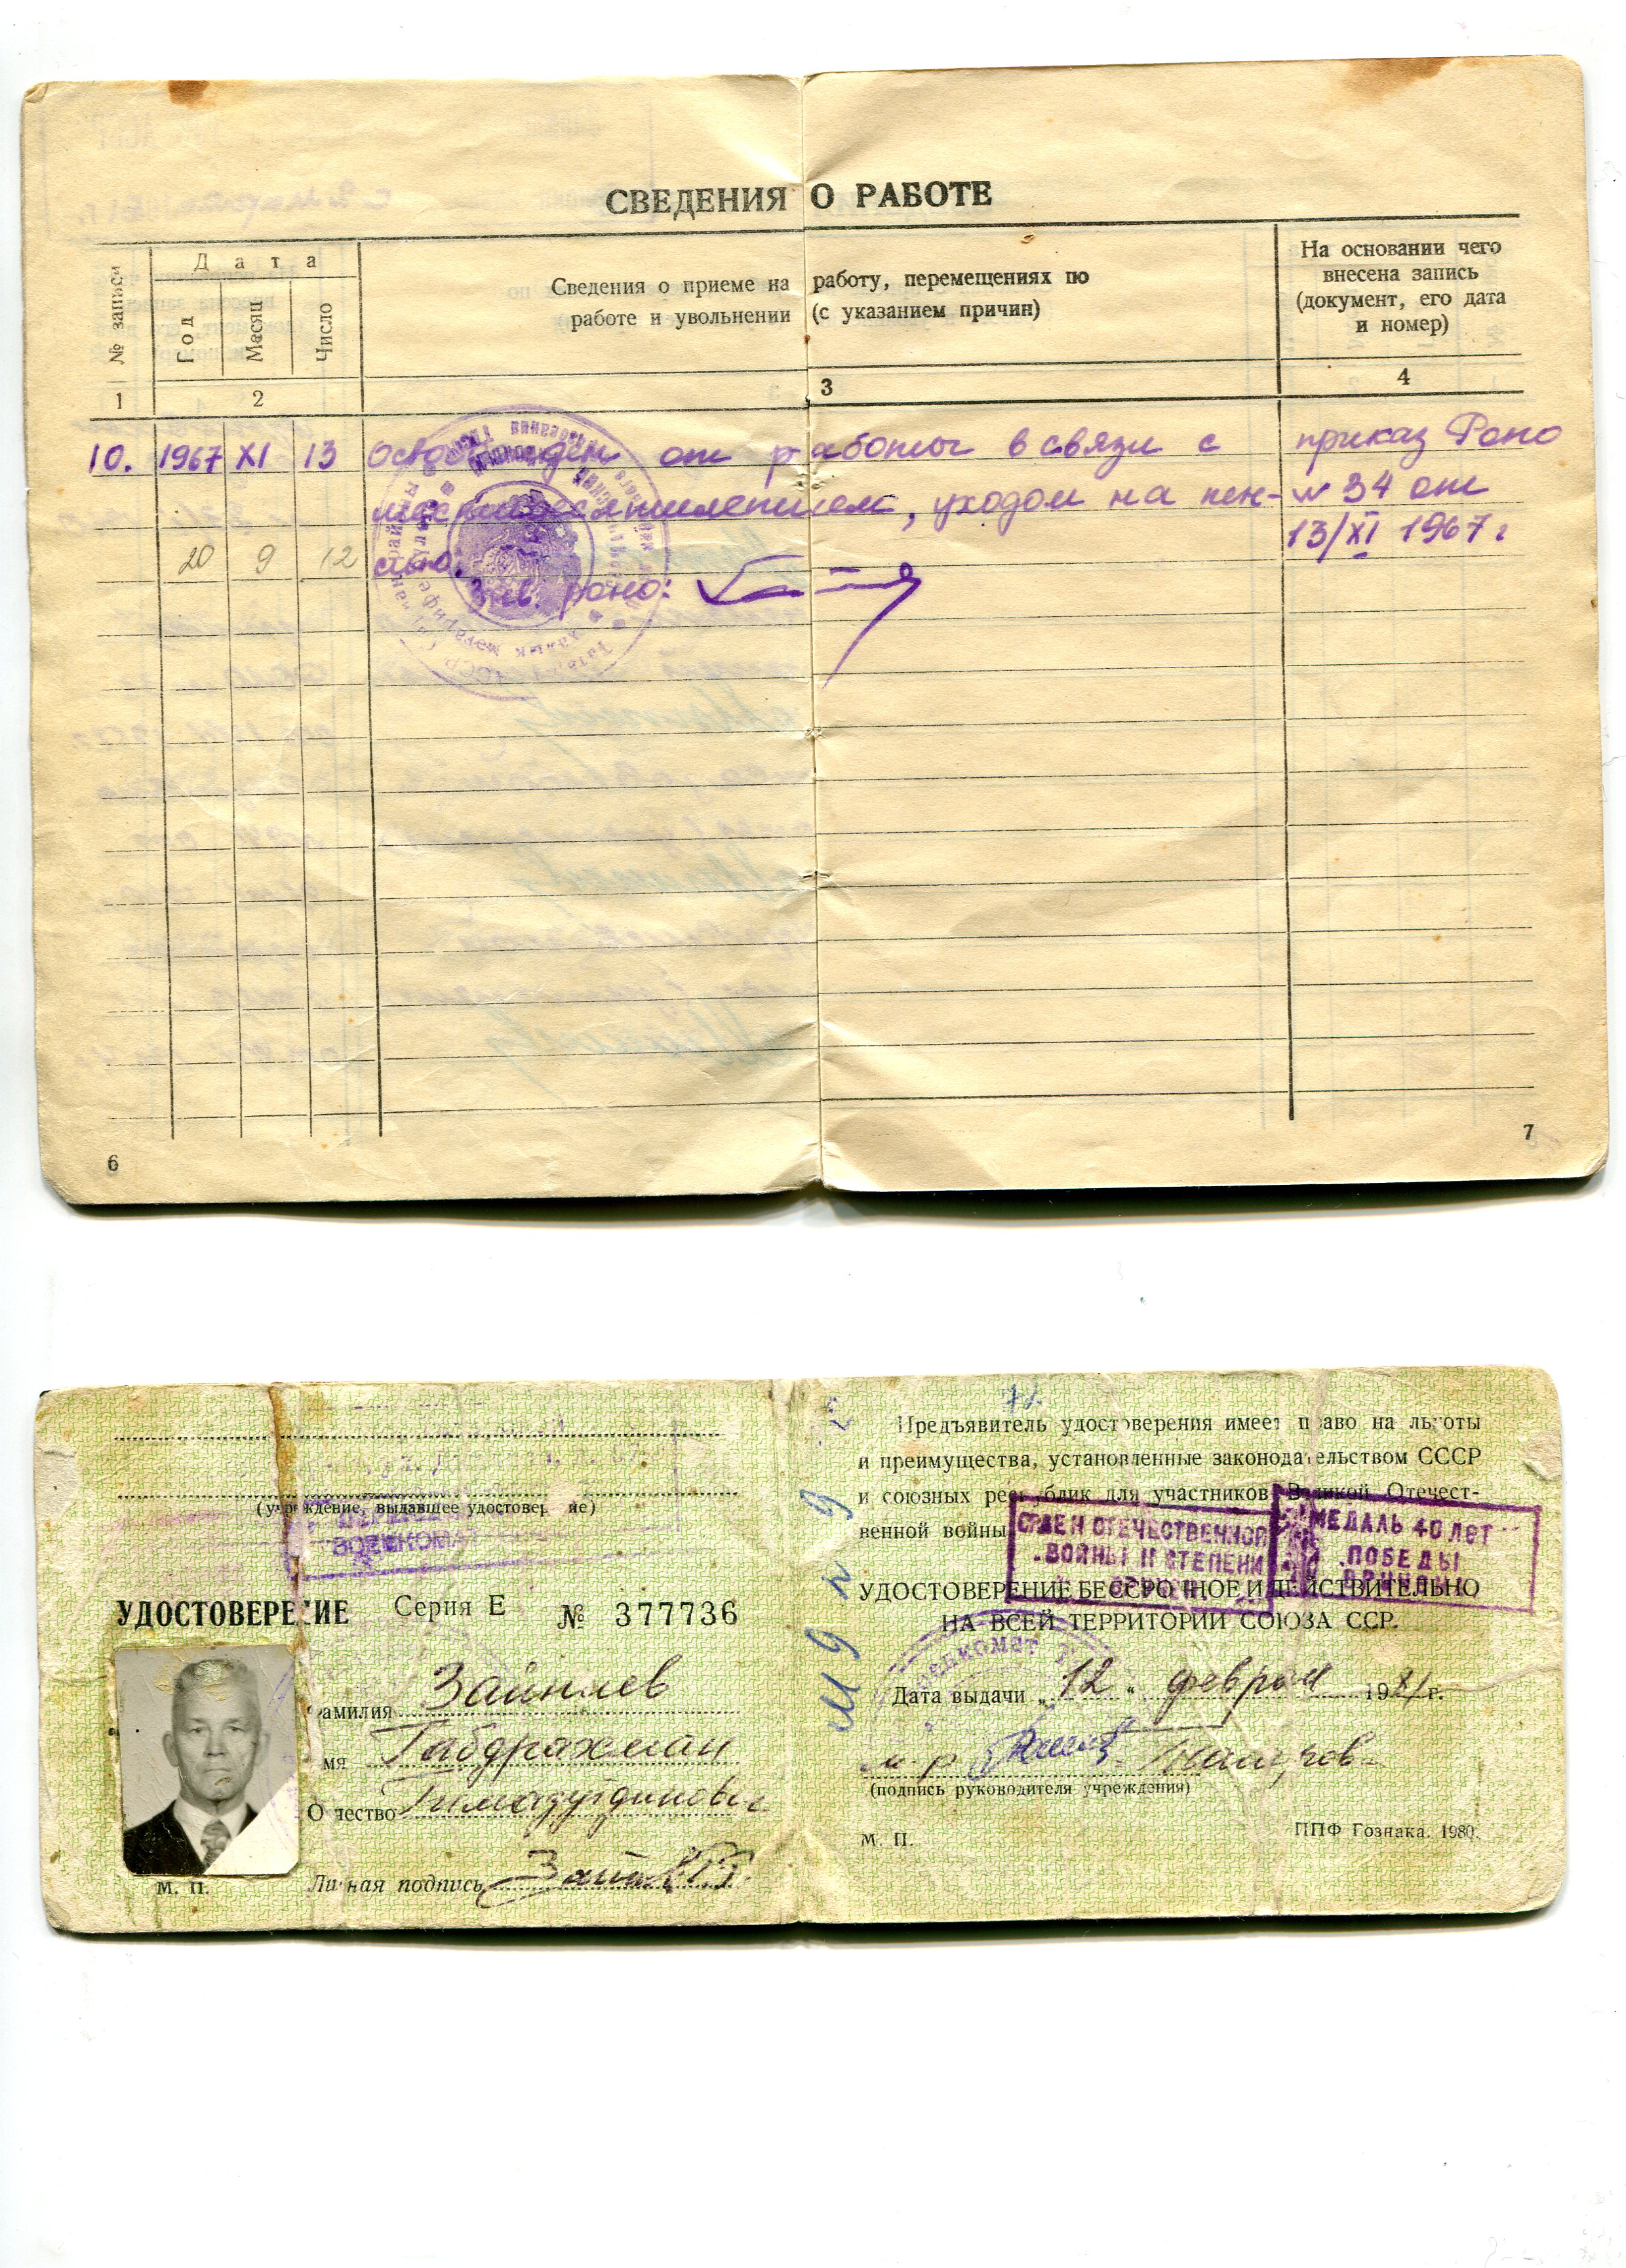 СВЕДЕНИЯ О РАБОТЕ
№ записи
Дата
Год
Месяц
Число
Сведения о приеме на работу, перемещениях по
работе и увольнении (с указанием причин)
На основании чего
внесена запись
(документ, его дата
и номер)
1
2
3
4
10. 1967 XI 13 Освобожден от работы в связи с
уходом на пен-
сию.
приказ Роно
№ 34 от
13/XI 1967 г
20 9 12
Зав. роно:
6
7
(учреждение, выдавшее удостоверение)
ВОЕНКОМАТ
УДОСТОВЕРЕНИЕ Серия Е № 377736
Фамилия Зайниев
Имя Габдрахман
Отчество Гимадутдинович
Личная подпись
М. П.
Предъявитель удостоверения имеет право на льготы
и преимущества, установленные законодательством СССР
и союзных республик для участников Великой Отечест-
венной войны
ОРДЕН ОТЕЧЕСТВЕННОЙ
ВОЙНЫ II СТЕПЕНИ
МЕДАЛЬ 40 ЛЕТ
ПОБЕДЫ
УДОСТОВЕРЕНИЕ БЕССРОЧНОЕ И ДЕЙСТВИТЕЛЬНО
НА ВСЕЙ ТЕРРИТОРИИ СОЮЗА ССР.
Дата выдачи „12“ феврал 1981 г.
(подпись руководителя учреждения)
М. П.
ППФ Гознака. 1980.